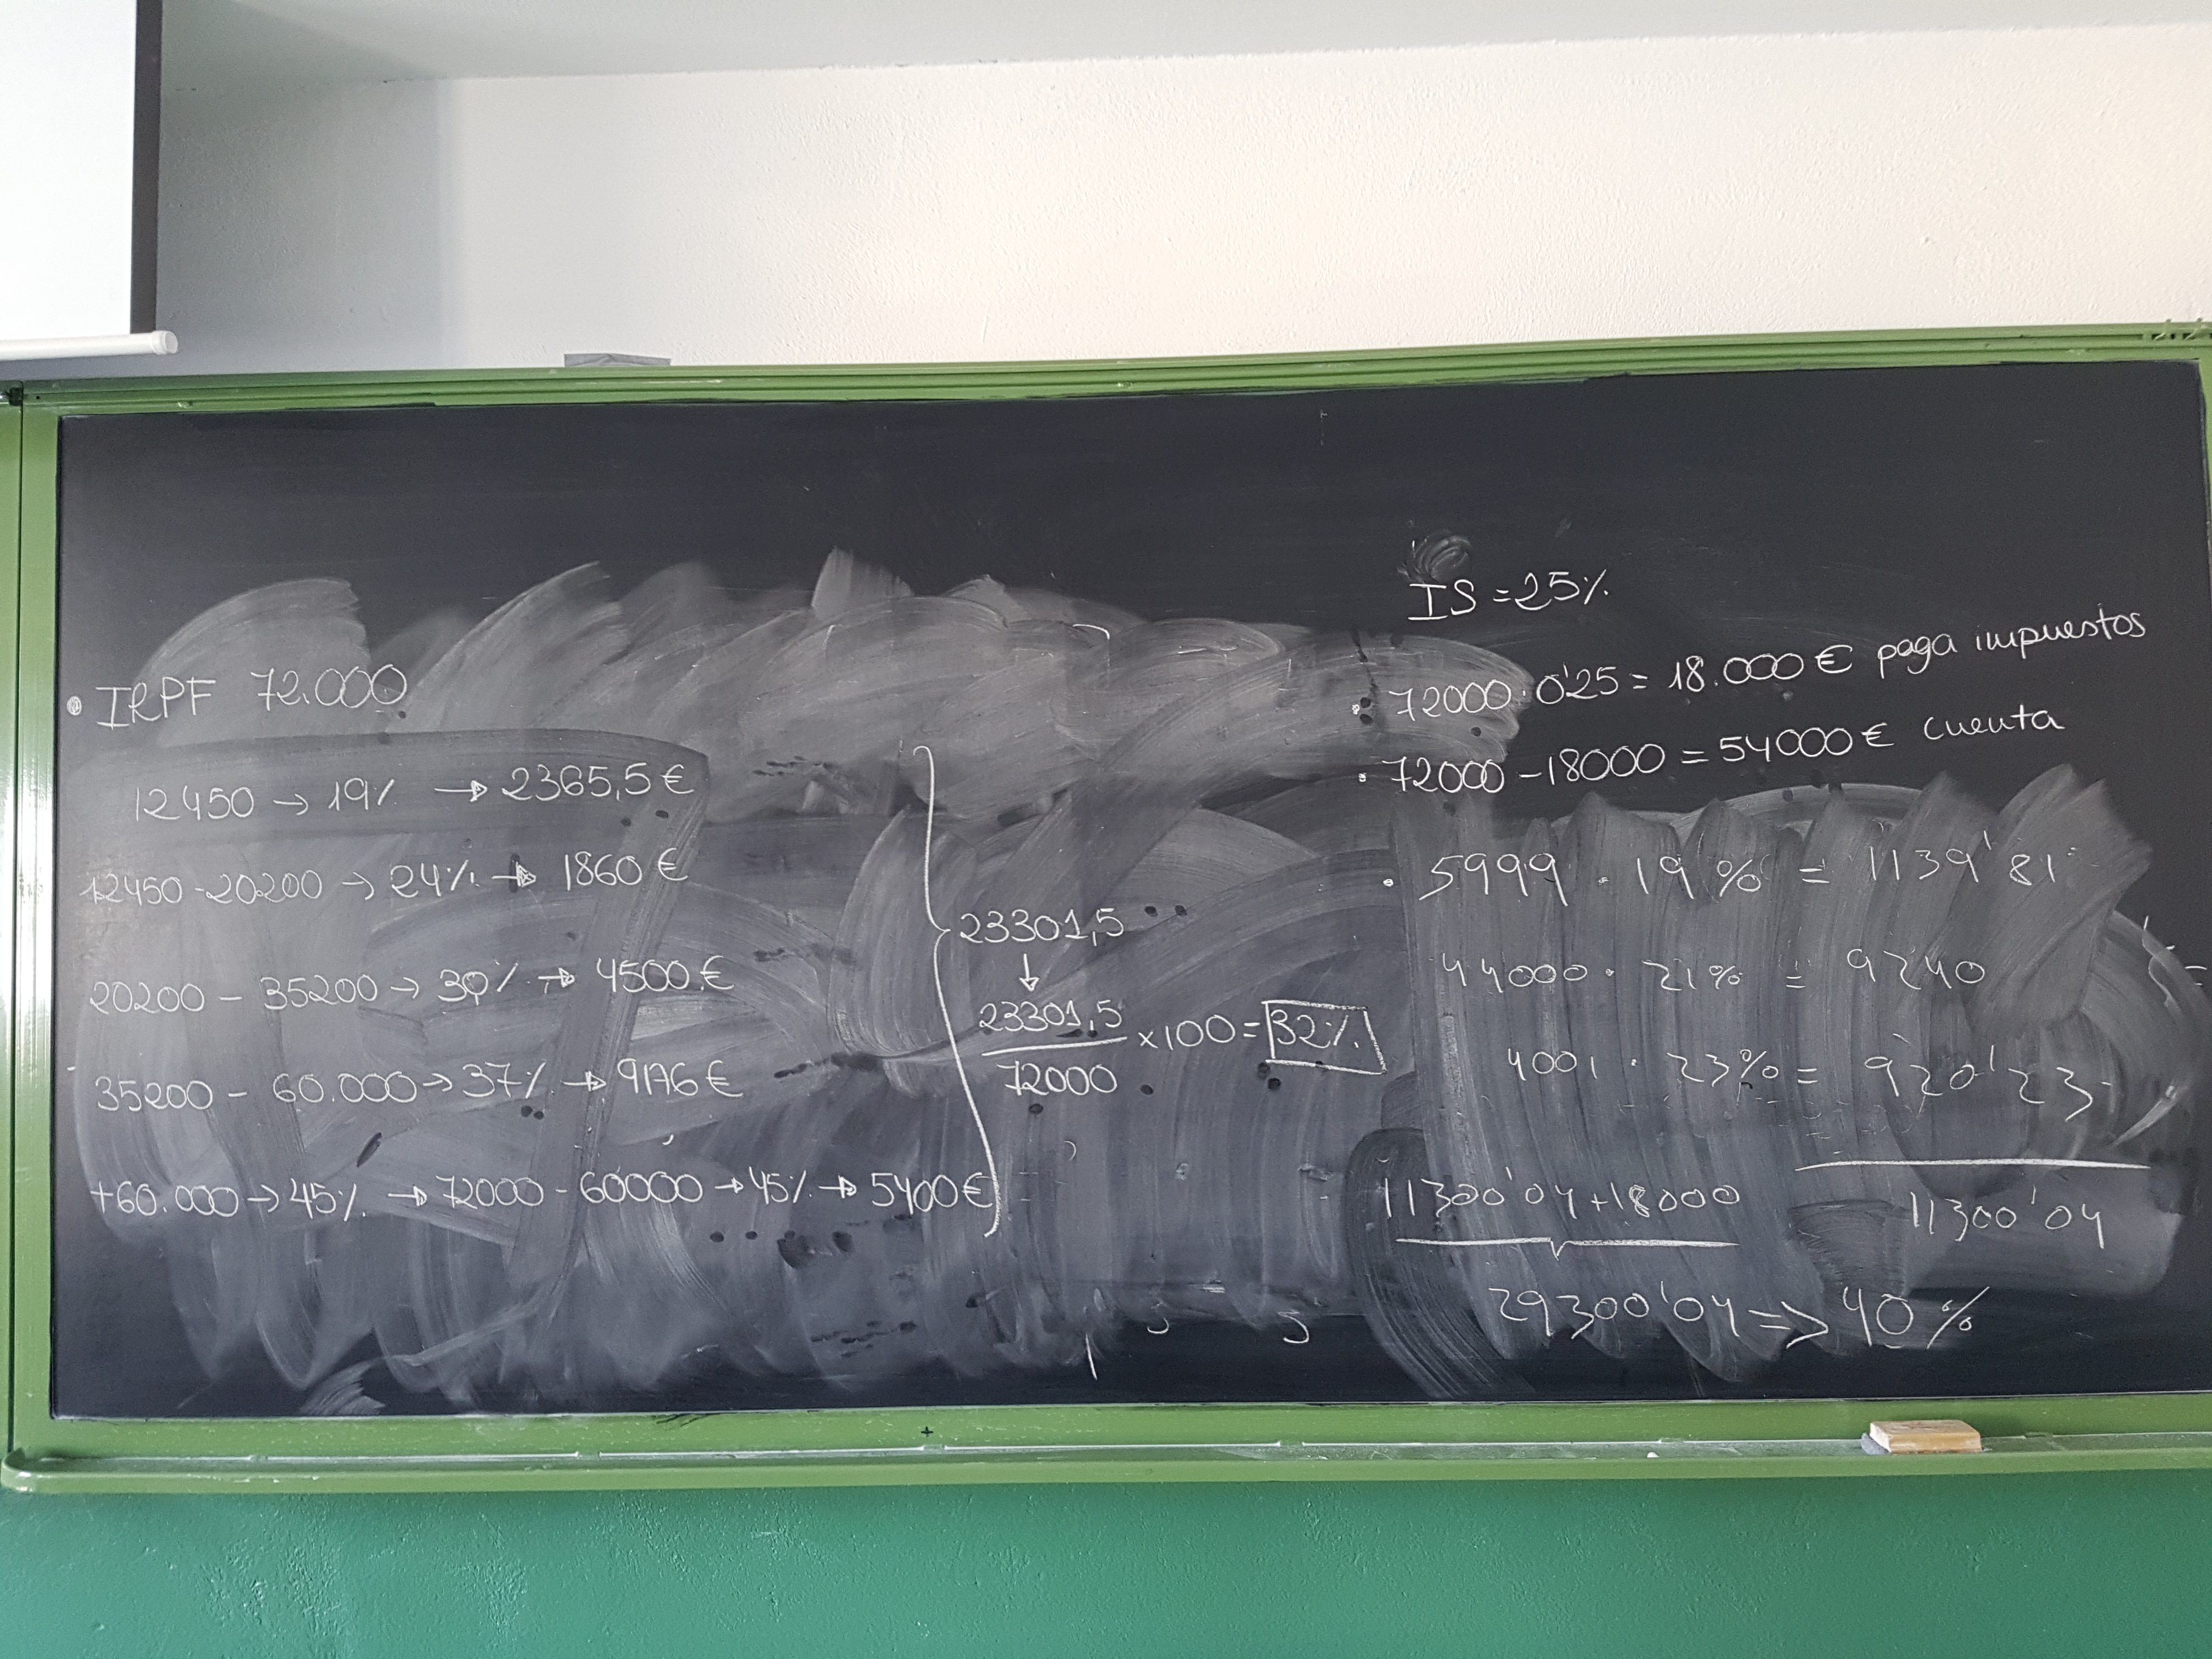 • IRPF 72.000
12450 → 19% → 2365,5 €
12450-20200 → 24% → 1860 €
20200 - 35200 → 30% → 4500 €
35200 - 60.000 → 37% → 9176 €
+60.000 → 45% → 72000 - 60000 → 45% → 5400 €
23301,5
↓
23301,5
72000
×100 = 32%
IS = 25%
• 72000 · 0'25 = 18.000 € paga impuestos
• 72000 - 18000 = 54000 € cuenta
• 5999 · 19% = 1139'81
44000 · 21% = 9240
4001 · 23% = 920'23
11300'04
11300'04 + 18000
29300'04 => 40%